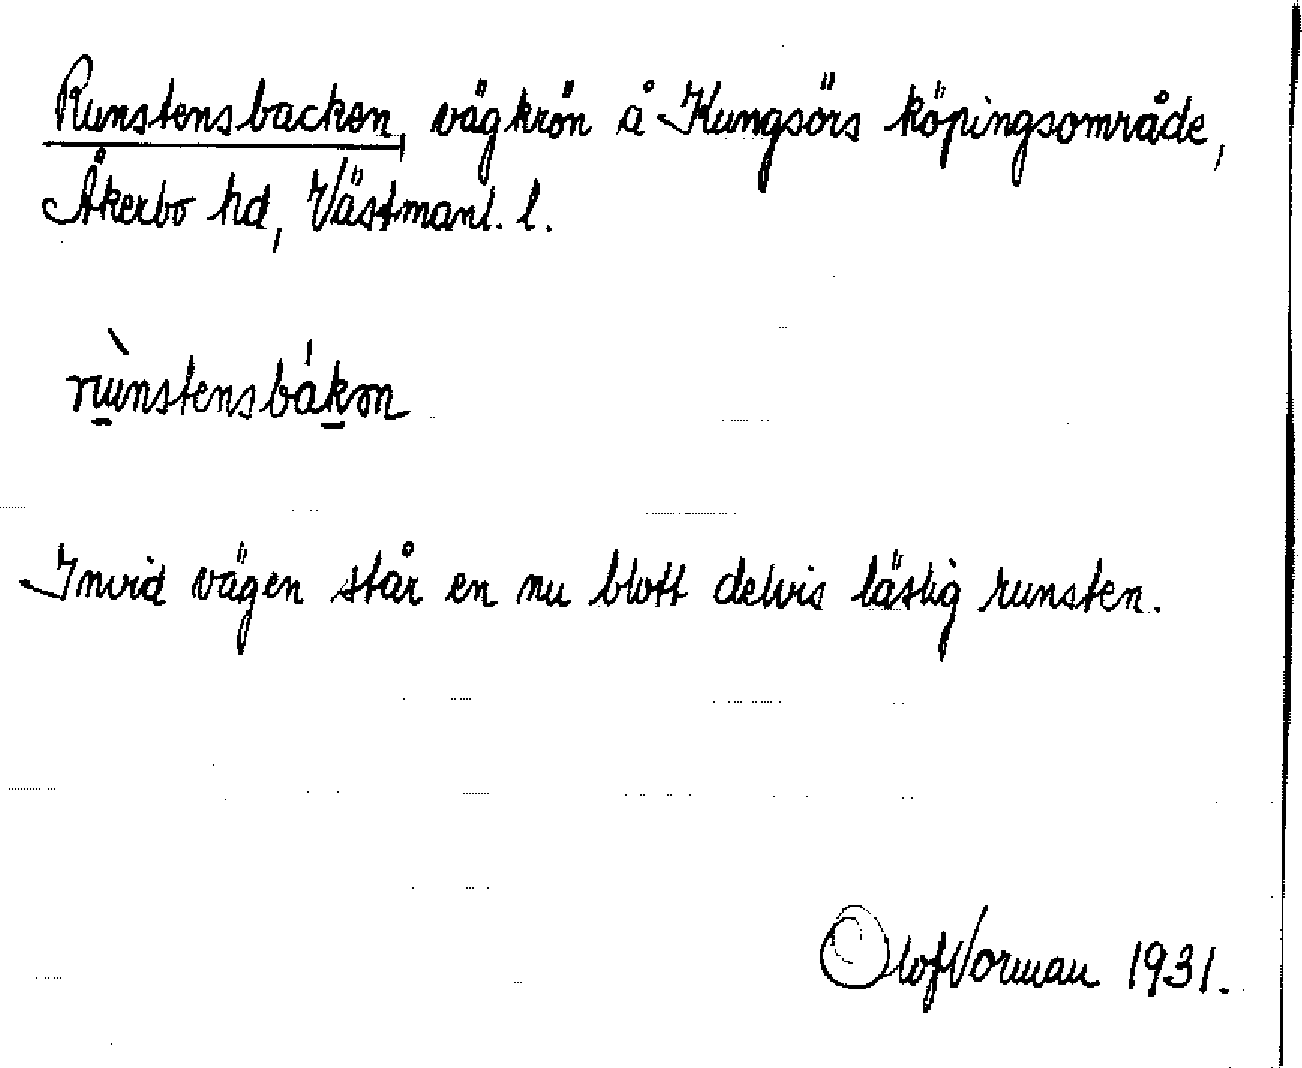 Runstensbacken, vägkrön å Kungsörs köpingsområde,
Åkerbo hd, Västmanl. l.
Invid vägen står en nu blott delvis läslig runsten.
Olof Vorman 1931.